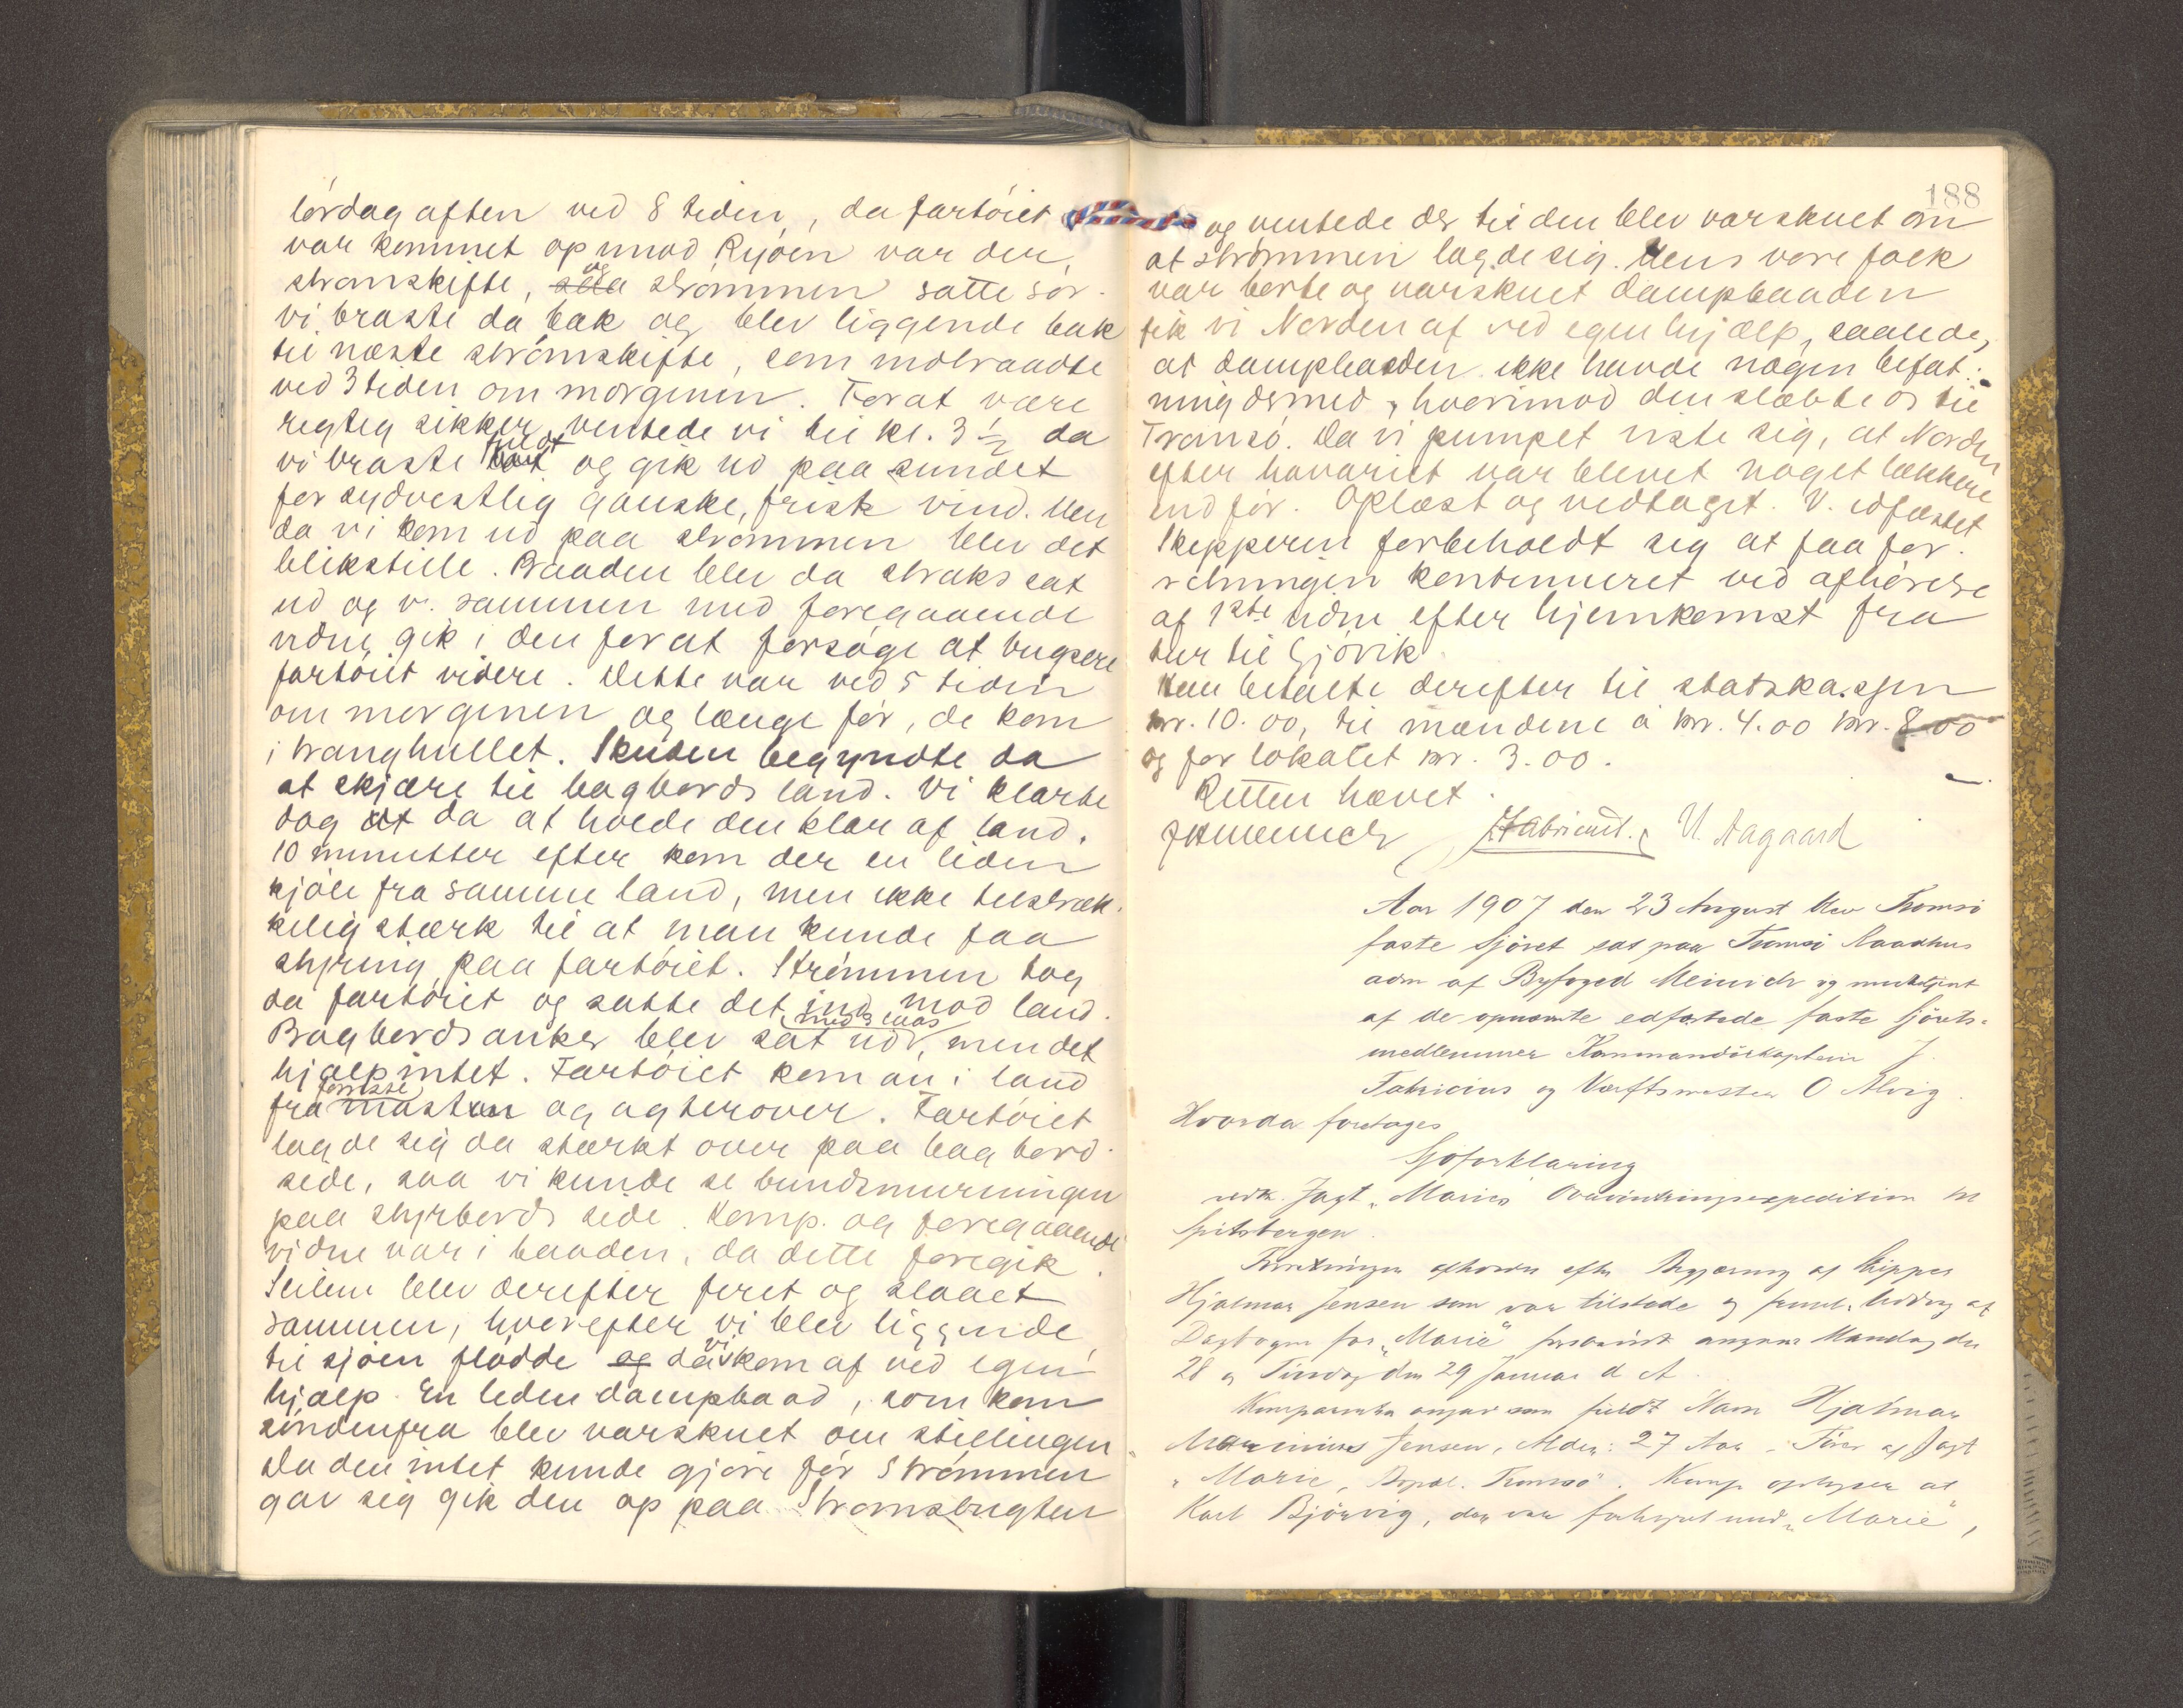 lørdag aften ved 8 tiden, da fartøiet
var kommet op imod Ryøen var der
strømskifte, saa og strømmen satte sør.
vi braste da bak og blev liggende bak
til næste strømskifte, som indtraadte
ved 3 tiden om morgenen. Forat være
regtig sikker ventede vi til kl. 3 ½ da
vi braste fuldt og gik ud paa sundet
for sydvestlig ganske, frisk vind. Men
da vi kom ud paa strømmen blev det
blikstille. Baaden blev da straks sat
ud og v. sammen med foregaaende
vidne gik i den forat forsøge at bugsere
fartøiet videre. Dette var ved 5 tiden
om morgenen og længe før, de kom
i tranghullet. Skuden begyndte da
at skjære til bagbords land. Vi klarte
dog at da at holde den klar af land.
10 minutter efter kom der en liden
kjøle fra samme land, men ikke tilstræk-
kelig stærk til at man kunde faa
styring paa fartøiet. Strømmen tog
da fartøiet og satte det ind mod land.
Bagbords anker blev sat ud, men det
hjalp intet. Fartøiet kom an i land
fra forreste masten og agterover. Fartøiet
lagde sig da stærkt over paa bagbord
side, saa vi kunde se bundsmurningen
paa styrbords side. Komp. og foregaaende
vidne var i baaden, da dette foregik.
Seilene blev derefter firet og slaaet
sammen, hvorefter vi blev liggende
til sjøen flødde og da vi kom af ved egen
hjælp. En liden dampbaad, som kom
søndenfra blev varskuet om stillingen.
Da den intet kunde gjøre før Strømmen
gav seg gik den op paa Strømsbugten
188
og ventede der til den blev varskuet om
at strømmen lagde sig. Mens vore folk
var borte og varskuet dampbaaden
fik vi Norden af ved egen hjælp, saalede,
at dampbaaden ikke havde nogen befat-
ning dermed, hvorimod den slæbte os til
Tromsø. Da vi pumpet viste sig, at Norden
efter havariet var blevet noget lækkere
end før. Oplæst og vedtaget. V. edfæstet
Skipperen forbeholdt sig at faa for-
retningen kontinueret ved afhørelse
af 1ste vidne efter hjemkomst fra
tur til Gjøvik
Han betalte derefter til statskassen
kr. 10.00, til mændene á kr. 4.00 kr. 8.00
og for lokalet kr. 3.00.
Retten hævet.
Fabricius. U. Aagaard
Aar 1907 den 23 August blev Tromsø
faste Sjøret sat paa Tromsø Raadhus
adm af Byfoged Meinich og meddtjent
af de opnævnte edfæstede faste Sjørets-
medlemmer Kommandørkaptein J.
Fabricius og Værftsmester O Alvig.
Hvorda foretages
Sjøforklaring
vedk. Jagt „Marie's" Overvintringsexpedition til
Spitsbergen.
Forretningen afholdes efter Begjæring af Skipper
Hjalmar Jensen som var tilstede og freml. Uddrag af
Dagbogen for „Marie" forsaavidt angaar Mandag den
28 og Tirsdag den 29 Januar d A.
Komparenten angav som sit fulde Navn Hjalmar
Marinius Jensen, Alder: 27 Aar, Fører af Jagt
„Marie, Bopæl. Tromsø". Komp oplyser at
Karl Bjørvig, der var forhyret med „Marie",